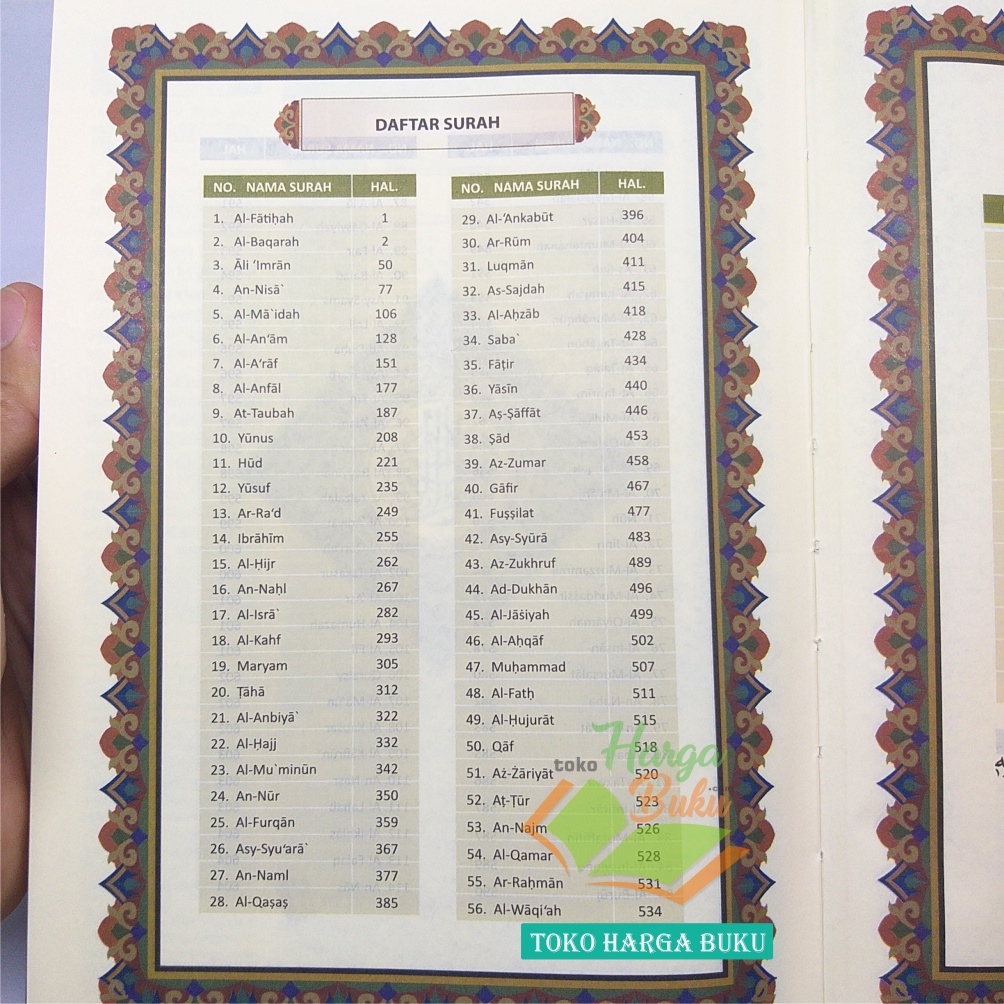 DAFTAR SURAH
NO. NAMA SURAH HAL.
1. Al-Fātiḥah 1
2. Al-Baqarah 2
3. Āli ‘Imrān 50
4. An-Nisā` 77
5. Al-Mā`idah 106
6. Al-An‘ām 128
7. Al-A‘rāf 151
8. Al-Anfāl 177
9. At-Taubah 187
10. Yūnus 208
11. Hūd 221
12. Yūsuf 235
13. Ar-Ra‘d 249
14. Ibrāhīm 255
15. Al-Ḥijr 262
16. An-Naḥl 267
17. Al-Isrā` 282
18. Al-Kahf 293
19. Maryam 305
20. Ṭāhā 312
21. Al-Anbiyā` 322
22. Al-Ḥajj 332
23. Al-Mu`minūn 342
24. An-Nūr 350
25. Al-Furqān 359
26. Asy-Syu‘arā` 367
27. An-Naml 377
28. Al-Qaṣaṣ 385
NO. NAMA SURAH HAL.
29. Al-‘Ankabūt 396
30. Ar-Rūm 404
31. Luqmān 411
32. As-Sajdah 415
33. Al-Aḥzāb 418
34. Saba` 428
35. Fāṭir 434
36. Yāsīn 440
37. Aṣ-Ṣāffāt 446
38. Ṣād 453
39. Az-Zumar 458
40. Gāfir 467
41. Fuṣṣilat 477
42. Asy-Syūrā 483
43. Az-Zukhruf 489
44. Ad-Dukhān 496
45. Al-Jāṡiyah 499
46. Al-Aḥqāf 502
47. Muḥammad 507
48. Al-Fatḥ 511
49. Al-Ḥujurāt 515
50. Qāf 518
51. Aż-Żāriyāt 520
52. Aṭ-Ṭūr 523
53. An-Najm 526
54. Al-Qamar 528
55. Ar-Raḥmān 531
56. Al-Wāqi‘ah 534
toko Harga
Buku
.com
TOKO HARGA BUKU